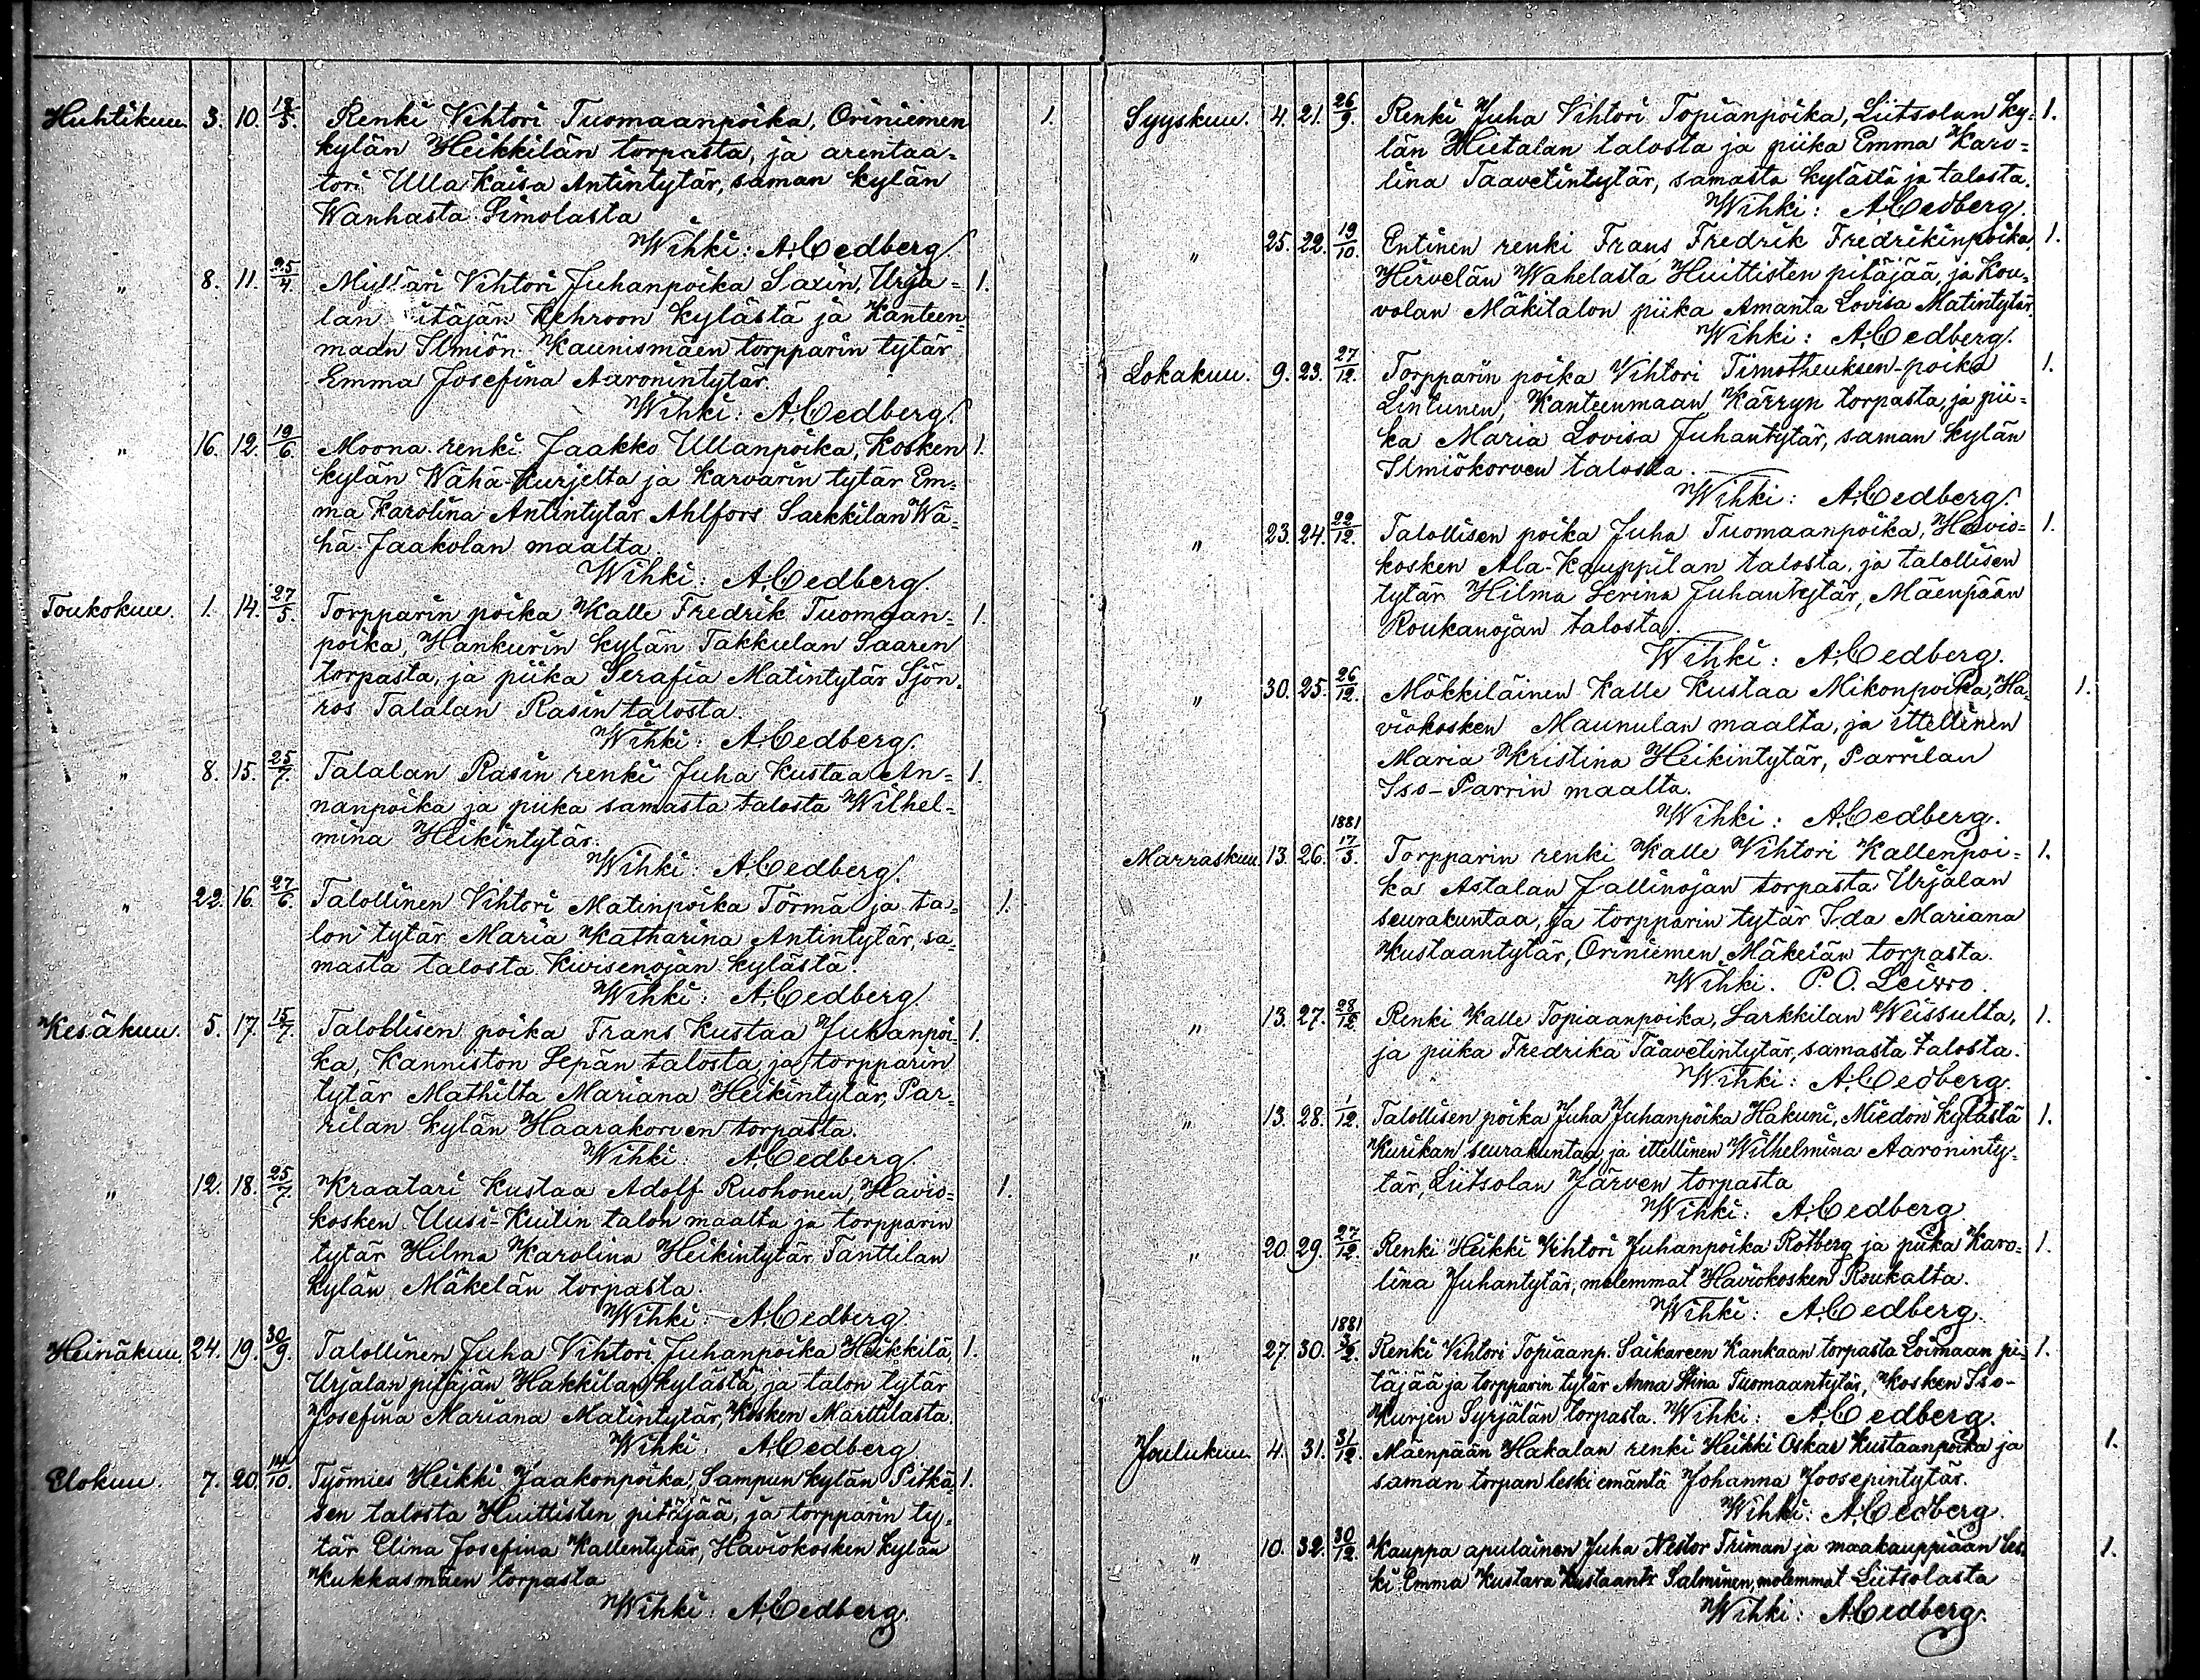 Huhtikuu 3. 10. 18/3. Renki Vihtori Tuomaanpoika, Oriniemen 1.
kylän Heikkilän torpasta, ja arentaa=
tori Ulla Kaisa Antintytär, saman kylän
Wanhasta Simolasta
Wihki: A. Cedberg.
" 8. 11. 25/4. Mylläri Vihtori Juhanpoika Saxin, Urja= 1.
lan pitäjän Kehroon kylästä ja Kanteen=
maan Ilmiön Kaunismäen torpparin tytär
Emma Josefina Aaronintytär.
Wihki: A. Cedberg.
" 16. 12. 19/6. Moona renki Jaakko Ullanpoika, Kosken 1.
kylän Wähä-Kurjelta ja karvarin tytär Em=
ma Karolina Antintytär Ahlfors Sarkkilan Wä=
hä-Jaakolan maalta.
Wihki: A. Cedberg.
Toukokuu. 1. 14. 27/5. Torpparin poika Kalle Fredrik Tuomaan= 1.
poika, Hankurin kylän Takkulan Saaren
torpasta, ja piika Serafia Matintytär Sjön=
ros Talalan Rasin talosta.
Wihki: A. Cedberg.
" 8. 15. 25/7. Talalan Rasin renki Juha Kustaa An= 1.
nanpoika ja piika samasta talosta Wilhel=
mina Heikintytär.
Wihki: A. Cedberg.
" 22. 16. 27/6. Talollinen Vihtori Matinpoika Törmä ja ta= 1.
lon tytär Maria Katharina Antintytär, sa=
masta talosta Kivisenojan kylästä.
Wihki: A. Cedberg.
Kesäkuu. 5. 17. 15/7. Talollisen poika Frans Kustaa Juhanpoi= 1.
ka, Kanniston Sepän talosta, ja torpparin
tytär Mathilta Mariana Heikintytär, Par=
rilan kylän Haarakorven torpasta.
Wihki: A. Cedberg.
" 12. 18. 25/7. Kraatari Kustaa Adolf Ruohonen, Havio= 1.
kosken Uusi-Kutin talon maalta ja torpparin
tytär Hilma Karolina Heikintytär Tanttilan
kylän Mäkelän torpasta.
Wihki: A. Cedberg
Heinäkuu. 24. 19. 30/9. Talollinen Juha Vihtori Juhanpoika Heikkilä, 1.
Urjalan pitäjän Hakkilan kylästä, ja talon tytär
Josefina Mariana Matintytär, Kosken Marttilasta.
Wihki: A. Cedberg
Elokuu. 7. 20. 14/10. Työmies Heikki Jaakonpoika, Sampun kylän Pitkä= 1.
sen talosta Huittisten pitäjää, ja torpparin ty=
tär Elina Josefina Kallentytär, Haviokosken kylän
Kukkasmäen torpasta
Wihki: A. Cedberg.
Syyskuu. 4. 21. 26/9. Renki Juha Vihtori Topianpoika, Liitsolan ky= 1.
län Hietalan talosta ja piika Emma Karo=
lina Taavetintytär, samasta kylästä ja talosta.
Wihki: A. Cedberg.
" 25. 22. 19/10. Entinen renki Frans Fredrik Fredrikinpoika, 1.
Hirvelän Wahelasta Huittisten pitäjää, ja Kou=
volan Mäkitalon piika Amanta Lovisa Matintytär.
Wihki: A. Cedberg.
Lokakuu. 9. 23. 27/12. Torpparin poika Vihtori Timotheuksen-poika 1.
Lintunen, Kanteenmaan Kärryn torpasta, ja pii=
ka Maria Lovisa Juhantytär, saman kylän
Ilmiökorven talosta.
Wihki: A. Cedberg.
" 23. 24. 22/12. Talollisen poika Juha Tuomaanpoika, Havio= 1.
kosken Ala-Kauppilan talosta, ja talollisen
tytär Hilma Serina Juhantytär, Mäenpään
Roukanojan talosta.
Wihki: A. Cedberg.
" 30. 25. 26/12. Mökkiläinen Kalle Kustaa Mikonpoika, Ha= 1.
viokosken Maunulan maalta, ja ittellinen
Maria Kristina Heikintytär, Parrilan
Iso-Parrin maalta.
Wihki: A. Cedberg.
1881
Marraskuu 13. 26. 17/3. Torpparin renki Kalle Vihtori Kallenpoi= 1.
ka Astalan Jallinojan torpasta Urjalan
seurakuntaa, ja torpparin tytär Ida Mariana
Kustaantytär, Oriniemen Mäkelän torpasta.
Wihki. P. O. Leivvo.
" 13. 27. 28/12. Renki Kalle Topiaanpoika, Sarkkilan Weissulta, 1.
ja piika Fredrika Taavetintytär, samasta talosta.
Wihki: A. Cedberg.
" 13. 28. 1/12. Talollisen poika Juha Juhanpoika Hakuni, Miedon kylästä 1.
Kurikan seurakuntaa, ja ittellinen Wilhelmina Aaroninty=
tär, Liitsolan Järven torpasta
Wihki: A. Cedberg
" 20. 29. 27/12. Renki Heikki Vihtori Juhanpoika Rotberg ja piika Karo= 1.
lina Juhantytär, molemmat Haviokosken Roukalta.
Wihki: A. Cedberg.
1881
" 27. 30. 3/2. Renki Vihtori Topiaanp. Saikareen Kankaan torpasta Loimaan pi= 1.
täjää ja torpparin tytär Anna Stina Tuomaantytär, Kosken Iso-
Kurjen Syrjälän torpasta. Wihki: A. Cedberg.
Joulukuu 4. 31. 31/12. Mäenpään Hakalan renki Heikki Oskar Kustaanpoika ja 1.
saman torpan leski emäntä Johanna Joosepintytär.
Wihki: A. Cedberg.
" 10. 32. 30/12. Kauppa apulainen Juha Nestor Friman ja maakauppiaan les= 1.
ki Emma Kustava Kustaantr Salminen, molemmat Liitsolasta
Wihki: A. Cedberg.